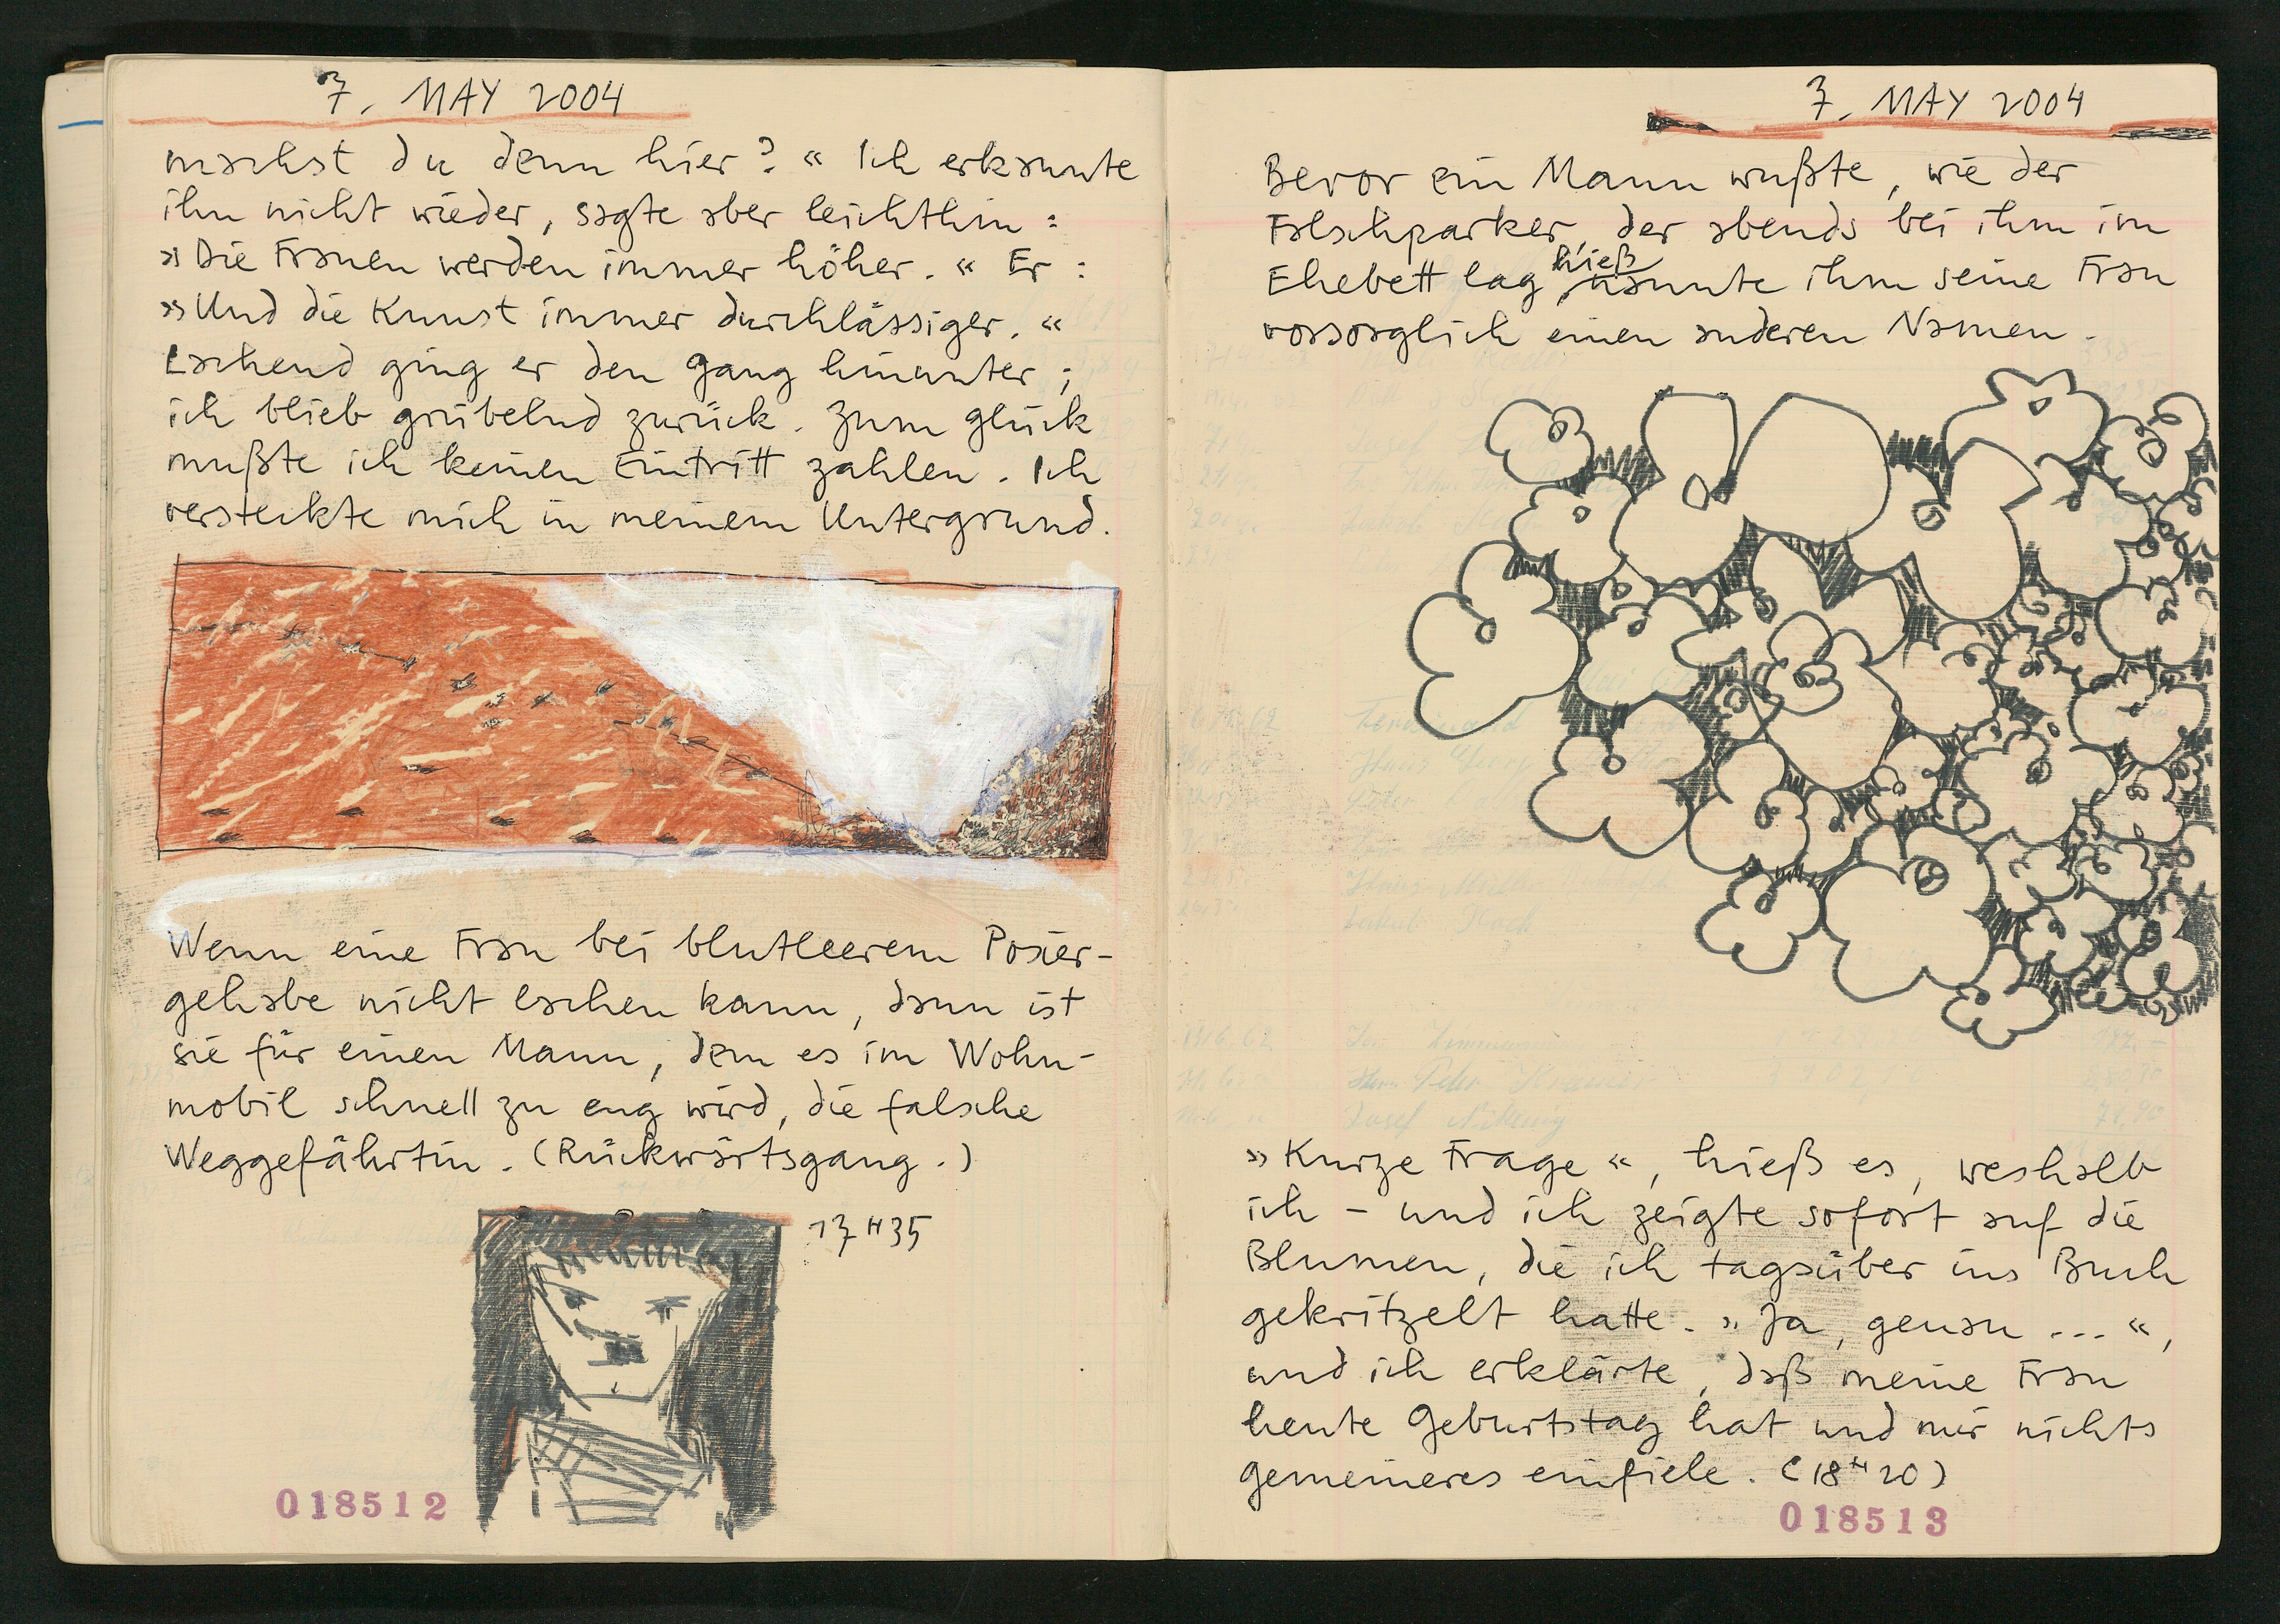 7. MAY 2004
machst du denn hier?« Ich erkannte
ihn nicht wieder, sagte aber leichthin:
»Die Frauen werden immer höher.« Er:
»Und die Kunst immer durchlässiger.«
Lachend ging er den Gang hinunter;
ich blieb grübelnd zurück. Zum Glück
mußte ich keinen Eintritt zahlen. Ich
versteckte mich in meinem Untergrund.
Wenn eine Frau bei blutleerem Posier-
gehabe nicht lachen kann, dann ist
sie für einen Mann, dem es im Wohn-
mobil schnell zu eng wird, die falsche
Weggefährtin. (Rückwärtsgang.)
17H35
018512
7. MAY 2004
Bevor ein Mann wußte, wie der
Falschparker, der abends bei ihm im
Ehebett lag, hieß, nannte ihm seine Frau
vorsorglich einen anderen Namen.
»Kurze Frage«, hieß es, weshalb
ich – und ich zeigte sofort auf die
Blumen, die ich tagsüber ins Buch
gekritzelt hatte. »Ja, genau ...«,
und ich erklärte, daß meine Frau
heute Geburtstag hat und mir nichts
gemeineres einfiele. (18H20)
018513